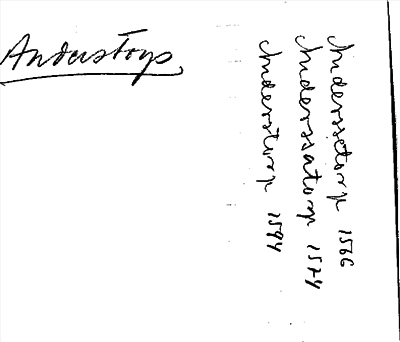 Anderstorp
Anderssetorp 1566
Anderssatorp 1574
Anderstorp 1594